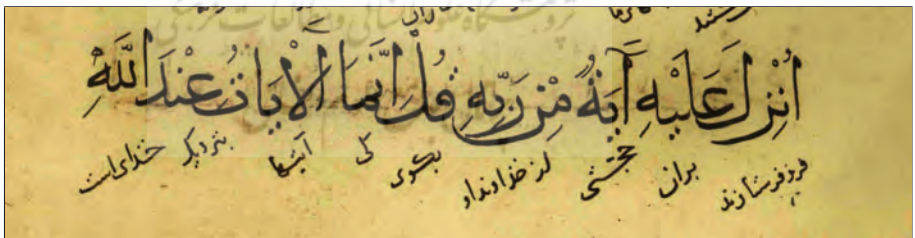 اُنْزِلَ عَلَيْهِ آيَةٌ مِنْ رَبِّهِ قُلْ اِنَّمَا الْاٰيَاتُ عِنْدَ اللّٰهِ
بران حجتی از خداوند او بگوی کی آیتها بنزدیک خدای است